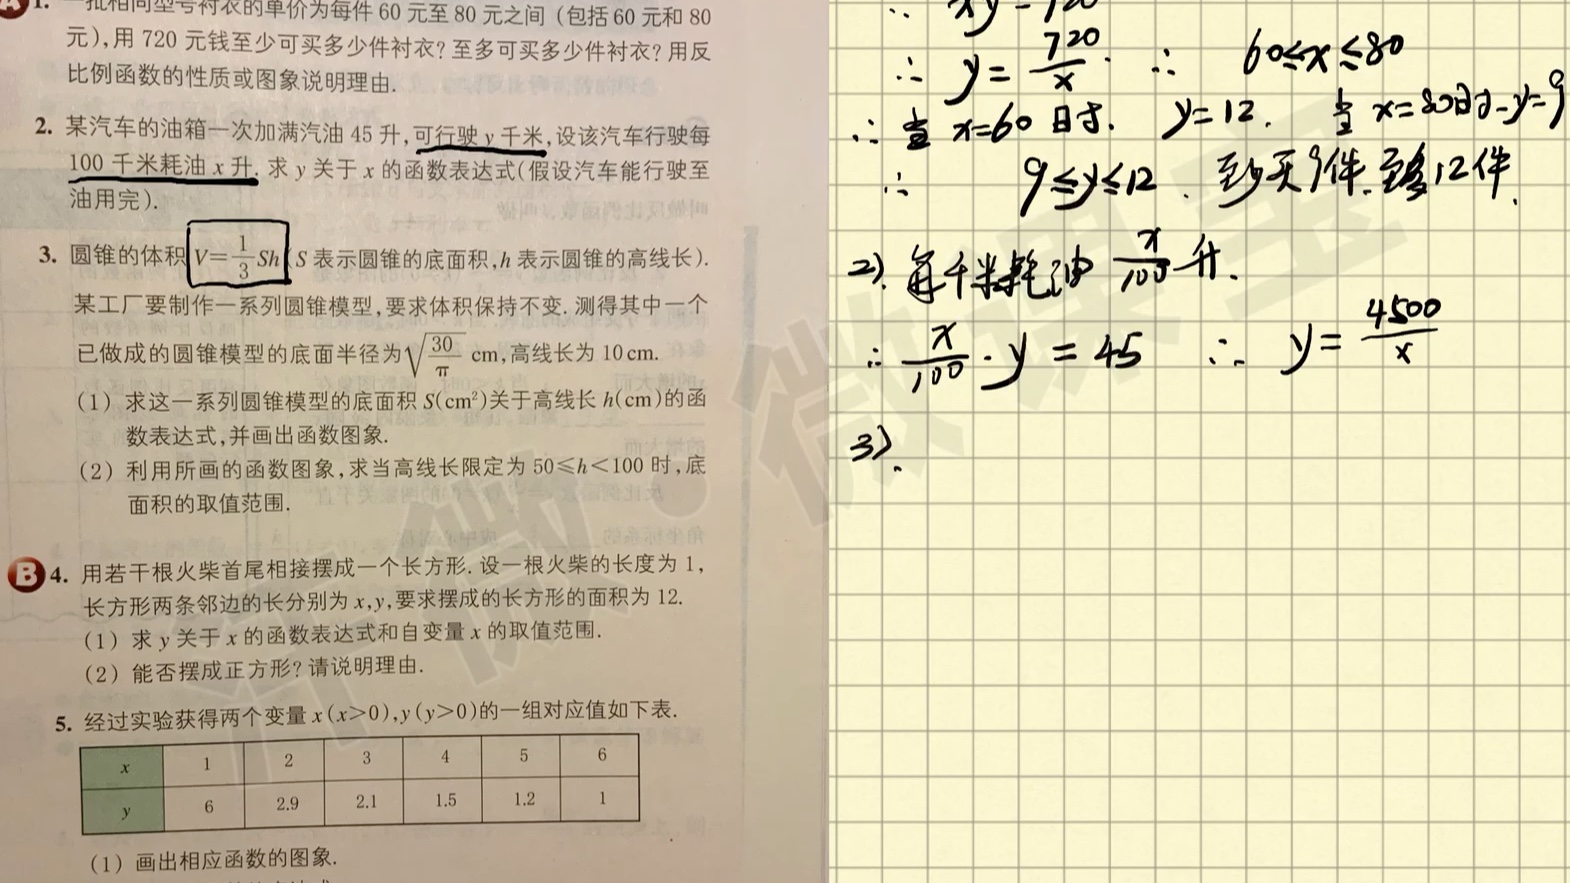 A 1. 一批相同型号衬衣的单价为每件 60 元至 80 元之间 (包括 60 元和 80
元), 用 720 元钱至少可买多少件衬衣? 至多可买多少件衬衣? 用反
比例函数的性质或图象说明理由.
2. 某汽车的油箱一次加满汽油 45 升, 可行驶 y 千米, 设该汽车行驶每
100 千米耗油 x 升. 求 y 关于 x 的函数表达式(假设汽车能行驶至
油用完).
3. 圆锥的体积 V=1/3 Sh (S 表示圆锥的底面积, h 表示圆锥的高线长).
某工厂要制作一系列圆锥模型, 要求体积保持不变. 测得其中一个
已做成的圆锥模型的底面半径为 √(30/π) cm, 高线长为 10 cm.
(1) 求这一系列圆锥模型的底面积 S(cm²)关于高线长 h(cm)的函
数表达式, 并画出函数图象.
(2) 利用所画的函数图象, 求当高线长限定为 50≤h<100 时, 底
面积的取值范围.
B 4. 用若干根火柴首尾相接摆成一个长方形. 设一根火柴的长度为 1,
长方形两条邻边的长分别为 x, y, 要求摆成的长方形的面积为 12.
(1) 求 y 关于 x 的函数表达式和自变量 x 的取值范围.
(2) 能否摆成正方形? 请说明理由.
5. 经过实验获得两个变量 x(x>0), y(y>0)的一组对应值如下表.
x 1 2 3 4 5 6
y 6 2.9 2.1 1.5 1.2 1
(1) 画出相应函数的图象.
∴ xy=720
∴ y=720/x. ∴ 60≤x≤80
∴ 当 x=60 时. y=12. 当 x=80时 y=9
∴ 9≤y≤12. 至少买9件. 至多12件.
2). 每千米耗油 x/100 升.
∴ x/100 · y = 45 ∴ y=4500/x
3).